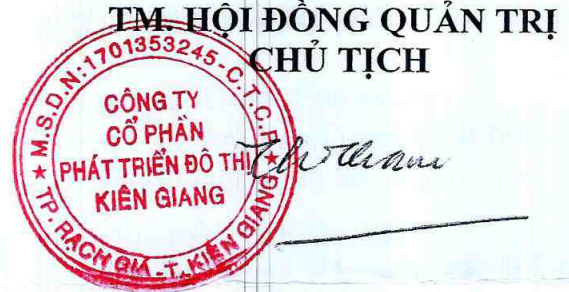 TM. HỘI ĐỒNG QUẢN TRỊ
CHỦ TỊCH
M.S.D.N:1701353245-C.T.C.P
CÔNG TY
CỔ PHẦN
PHÁT TRIỂN ĐÔ THỊ
KIÊN GIANG
TP. RẠCH GIÁ-T.KIÊN GIANG